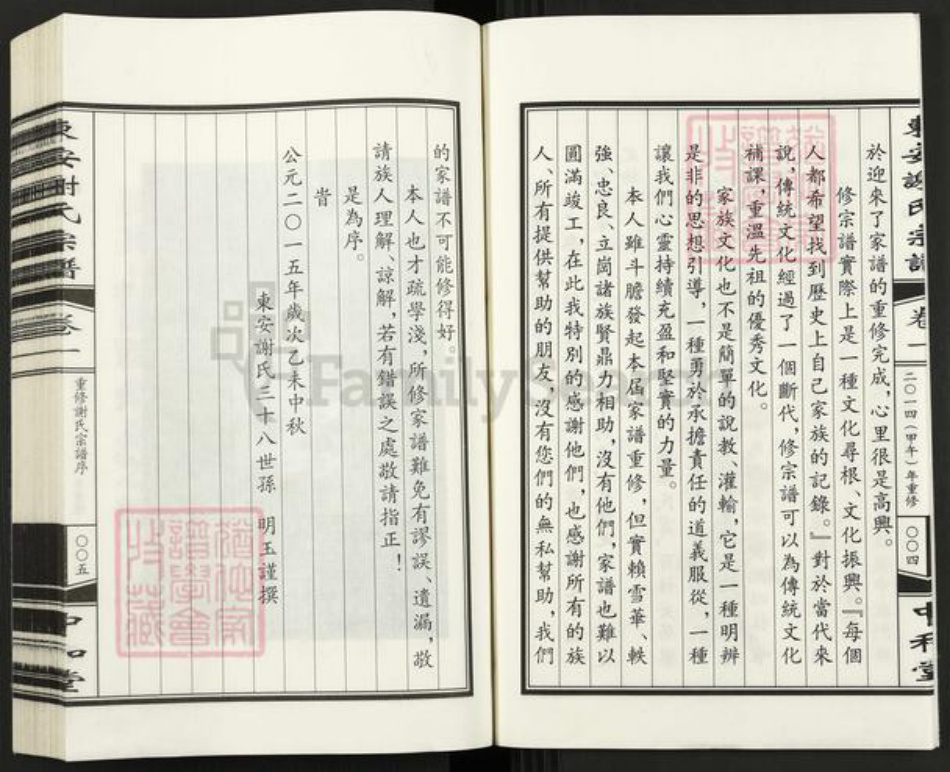 東安謝氏宗譜
卷一
二〇一四(甲午)年重修
〇〇四
中和堂
於迎來了家譜的重修完成，心里很是高興。
修宗譜實際上是一種文化尋根、文化振興。『每個
人都希望找到歷史上自己家族的記錄。』對於當代來
說，傳統文化經過了一個斷代，修宗譜可以為傳統文化
補課，重溫先祖的優秀文化。
家族文化也不是簡單的說教、灌輸，它是一種明辨
是非的思想引導，一種勇於承擔責任的道義服從，一種
讓我們心靈持續充盈和堅實的力量。
本人雖斗膽發起本届家譜重修，但實賴雪華、軼
強、忠良、立崗諸族賢鼎力相助，沒有他們，家譜也難以
圓滿竣工，在此我特別的感謝他們，也感謝所有的族
人、所有提供幫助的朋友，沒有您們的無私幫助，我們
的家譜不可能修得好。
本人也才疏學淺，所修家譜難免有謬誤、遺漏，敬
請族人理解、諒解，若有錯誤之處敬請指正！
是為序。
旹
公元二〇一五年歲次乙未中秋
東安謝氏三十八世孫 明玉謹撰
東安謝氏宗譜
卷一
重修謝氏宗譜序
〇〇五
中和堂
FamilySearch